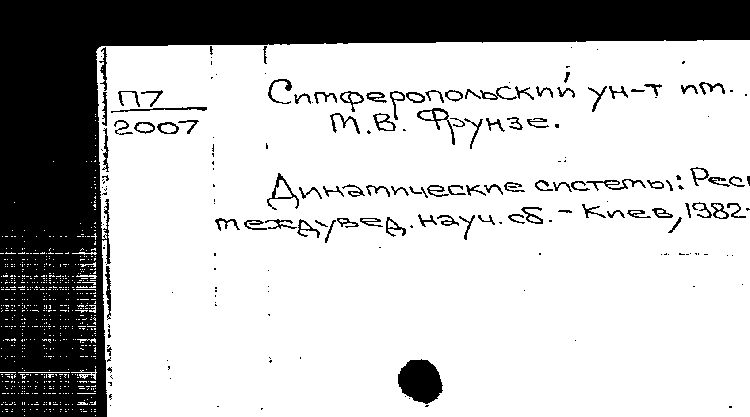 П7
2007
Симферопольский ун-т им.
М.В. Фрунзе.
Динамические системы: Респ
междувед. науч. сб. - Киев, 1982-